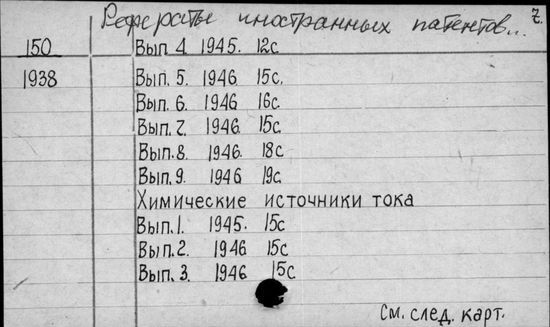 Рефераты иностранных патентов... 7.
150 Вып 4 1945. 12с
1938 Вып. 5. 1946 15с.
Вып. 6. 1946 16с.
Вып. 7. 1946. 15с
Вып. 8. 1946. 18с
Вып. 9. 1946. 19с.
Химические источники тока
Вып. 1. 1945. 15с
Вып. 2. 1946 15с
Вып. 3. 1946 15с
См. след. карт.